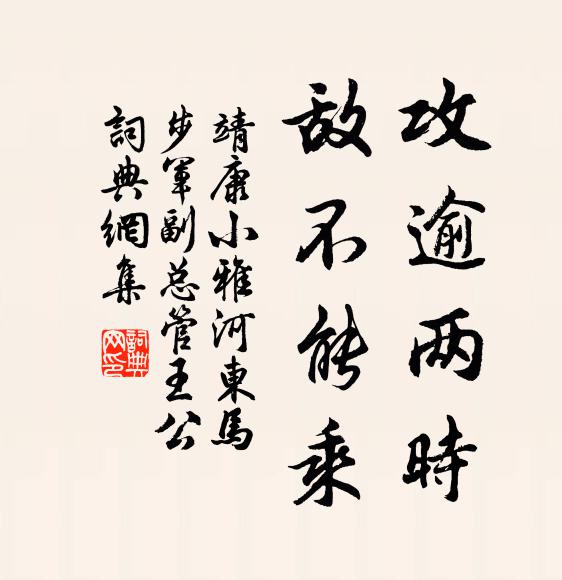 攻逾两時
敌不能乘
靖康小雅河東馬
步軍副总管王公
詞典網集
詞典网印